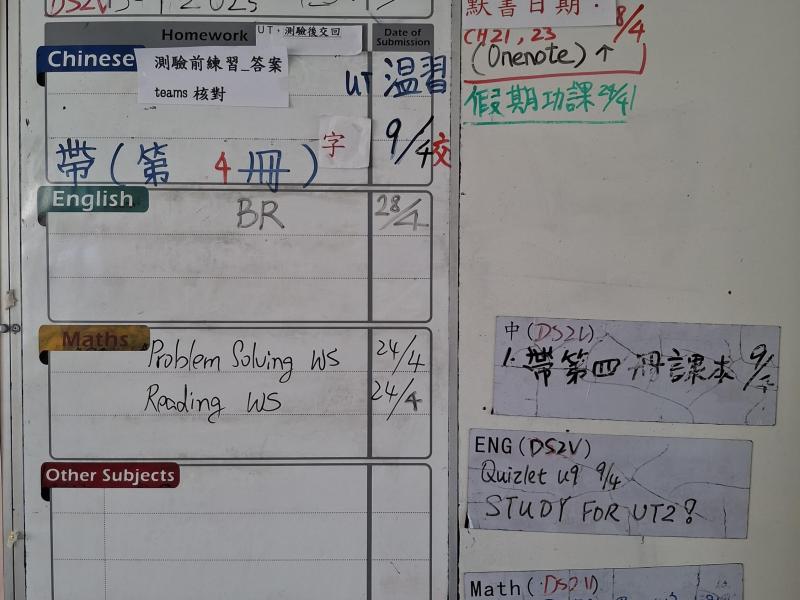 Homework
UT，測驗後交回
Date of Submission
Chinese
測驗前練習_答案
teams 核對
UT 温習
帶(第 4 冊)
字
9/4 交
English
BR 28/4
Maths
Problem Solving WS 24/4
Reading WS 24/4
Other Subjects
默書日期：
8/4
CH21, 23
(Onenote) ↑
假期功課 24/4
中(DS2V)
1. 帶第四冊課本 9/4
ENG(DS2V)
Quizlet U9 9/4
STUDY FOR UT2!
Math(DS2V)